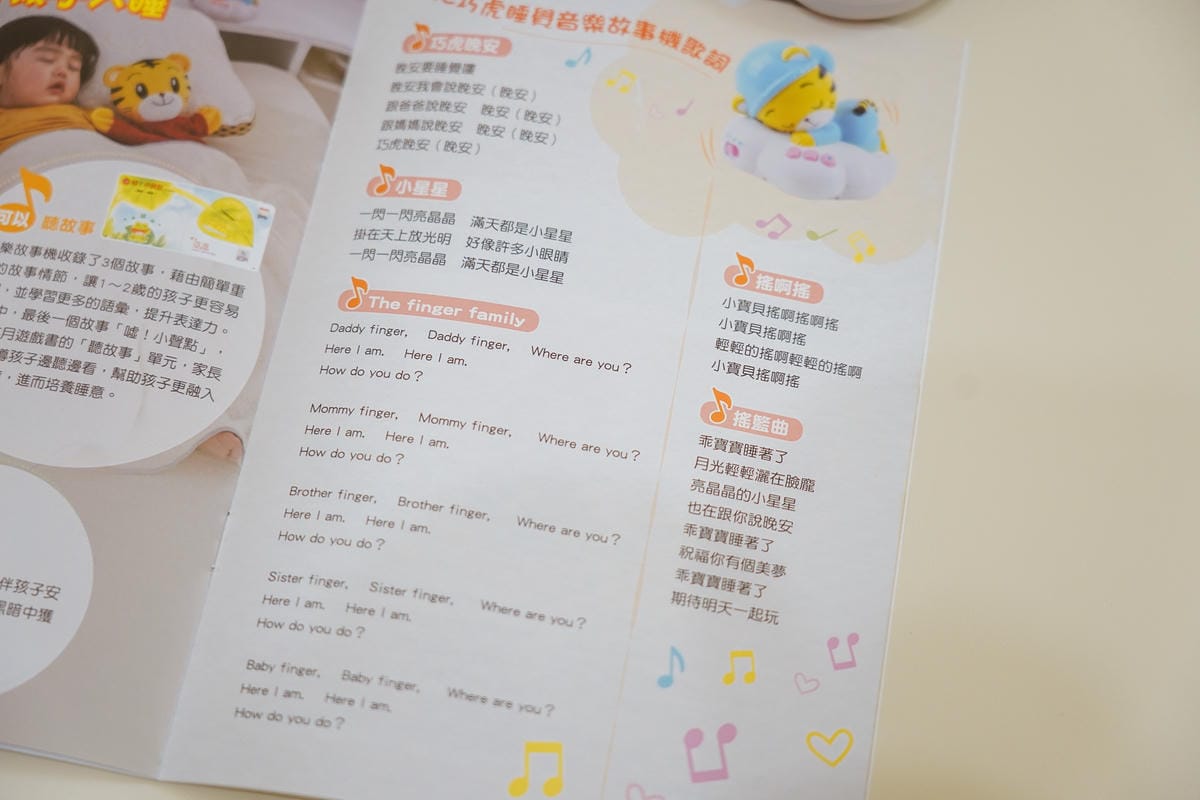 可以
聽故事
樂故事機收錄了3個故事，藉由簡單重
的故事情節，讓1～2歲的孩子更容易
，並學習更多的語彙，提升表達力。
中，最後一個故事「噓！小聲點」，
月遊戲書的「聽故事」單元，家長
導孩子邊聽邊看，幫助孩子更融入
，進而培養睡意。
伴孩子安
黑暗中獲
巧虎睡覺音樂故事機歌詞
巧虎晚安
晚安要睡覺囉
晚安我會說晚安（晚安）
跟爸爸說晚安　晚安（晚安）
跟媽媽說晚安　晚安（晚安）
巧虎晚安（晚安）
小星星
一閃一閃亮晶晶　滿天都是小星星
掛在天上放光明　好像許多小眼睛
一閃一閃亮晶晶　滿天都是小星星
The finger family
Daddy finger,　Daddy finger,　Where are you？
Here I am.　Here I am.
How do you do？
Mommy finger,　Mommy finger,　Where are you？
Here I am.　Here I am.
How do you do？
Brother finger,　Brother finger,　Where are you？
Here I am.　Here I am.
How do you do？
Sister finger,　Sister finger,　Where are you？
Here I am.　Here I am.
How do you do？
Baby finger,　Baby finger,　Where are you？
Here I am.　Here I am.
How do you do？
搖啊搖
小寶貝搖啊搖啊搖
小寶貝搖啊搖
輕輕的搖啊輕輕的搖啊
小寶貝搖啊搖
搖籃曲
乖寶寶睡著了
月光輕輕灑在臉龐
亮晶晶的小星星
也在跟你說晚安
乖寶寶睡著了
祝福你有個美夢
乖寶寶睡著了
期待明天一起玩